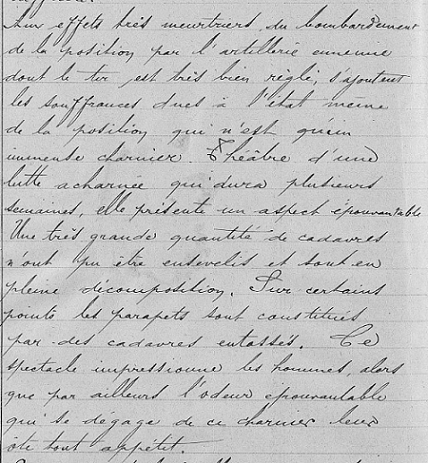 Aux effets très meurtriers du bombardement
de la position par l'artillerie ennemie
dont le tir est très bien réglé, s'ajoutent
les souffrances dues à l'état même
de la position qui n'est qu'un
immense charnier. Théâtre d'une
lutte acharnée qui dura plusieurs
semaines, elle présente un aspect épouvantable
Une très grande quantité de cadavres
n'ont pu être ensevelis et sont en
pleine décomposition. Sur certains
points les parapets sont constitués
par des cadavres entassés. Ce
spectacle impressionne les hommes, alors
que par ailleurs l'odeur épouvantable
qui se dégage de ce charnier leur
ôte tout appétit.